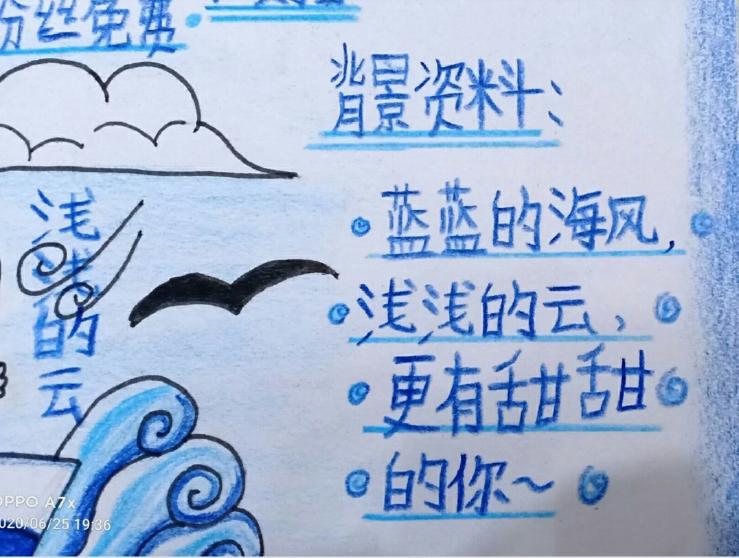 粉丝免费
背景资料：
蓝蓝的海风，
浅浅的云，
更有甜甜
的你～
浅浅的云
OPPO A7x
2020/06/25 19:36